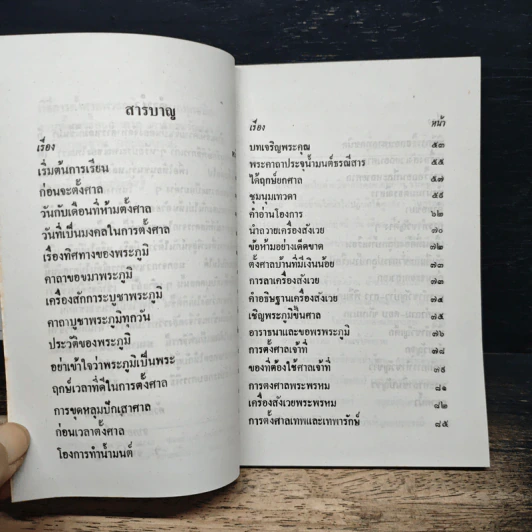 สารบาญ
เรื่อง
เริ่มต้นการเรียน
ก่อนจะตั้งศาล
วันกับเดือนที่ห้ามตั้งศาล
วันที่เป็นมงคลในการตั้งศาล
เรื่องทิศทางของพระภูมิ
คาถาขอขมาพระภูมิ
เครื่องสักการะบูชาพระภูมิ
คาถาบูชาพระภูมิทุกวัน
ประวัติของพระภูมิ
อย่าเข้าใจว่าพระภูมิเป็นพระ
ฤกษ์เวลาที่ดีในการตั้งศาล
การขุดหลุมปักเสาศาล
ก่อนเวลาตั้งศาล
โองการทำน้ำมนต์
เรื่อง หน้า
บทเจริญพระคุณ ๕๓
พระคาถาประจุน้ำมนต์ธรณีสาร ๕๕
ได้ฤกษ์ยกศาล ๕๗
ชุมนุมเทวดา ๕๙
คำอ่านโองการ ๖๒
นำถวายเครื่องสังเวย ๗๐
ข้อห้ามอย่างเด็ดขาด ๗๒
ตั้งศาลบ้านที่มีเงินน้อย ๗๓
การลาเครื่องสังเวย ๗๓
คำอธิษฐานเครื่องสังเวย ๗๔
เชิญพระภูมิขึ้นศาล ๗๕
อาราธนาและขอพรพระภูมิ ๗๖
การตั้งศาลเจ้าที่ ๗๘
ของที่ต้องใช้ศาลเจ้าที่ ๗๙
การตั้งศาลพระพรหม ๘๑
เครื่องสังเวยพระพรหม ๘๒
การตั้งศาลเทพและเทพารักษ์ ๘๕